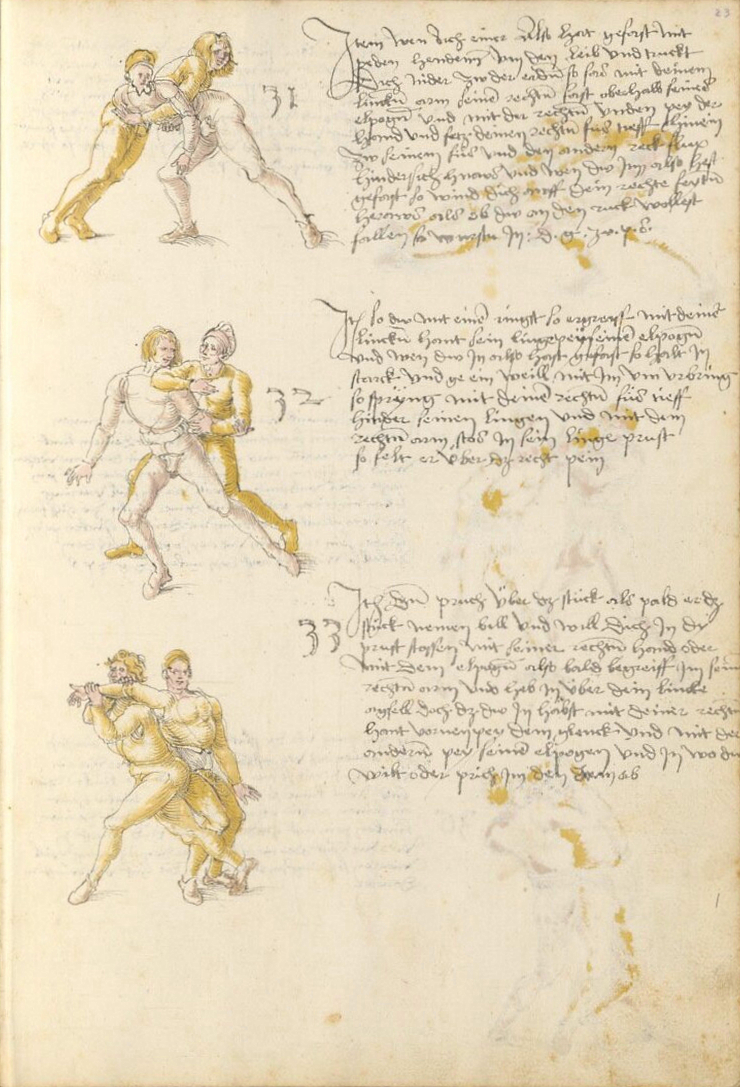 23
31
Item wen dich einer Also hat gefast mit
peden hendenn um den leib und truckt
Dich nider zw der erdn so fas mit deinem
linckn arm seinē rechtn fast oberhalb seines
elpogn und mit der rechtn unden pey der
hand und setz deinen rechtn fus tieff hinein
zw seinem fus und den andern reck
hindersich hinaus und wen dw Jn also hast
gefast so wind dich auff dein rechte seytn
heraws als ob dw an den ruck wollest
fallen so wurfstu Jn. d. g. zw. p. s.
32
Itē so dw mit einē ringst so ergreiff mit deinē
linckn hant sein linge pey seinem elpogn
und wen dw Jn also hast gefast so halt Jn
starck und ge ein weill mit Jm um
so spring mit deinē rechtn fus tieff
hinder seinen lingen und mit dem
rechtn arm stos Jn sein linge prust
so felt er uber dz recht pein
33
Itē Den pruch uber dz stuck als pald er dz
stuck nemen will und will dich Jn dy
prust stossen mit seiner rechtn hand oder
mit dem elpogn also bald begreiff Jm sein
rechtn arm und heb Jn uber dein lincke
agsell doch dz dw Jn habst mit deiner rechtn
hant vornen pey dem glenck und mit der
andernn pey seinē elpogen und Jn wo dw
wilt oder prich Jm den arm ab